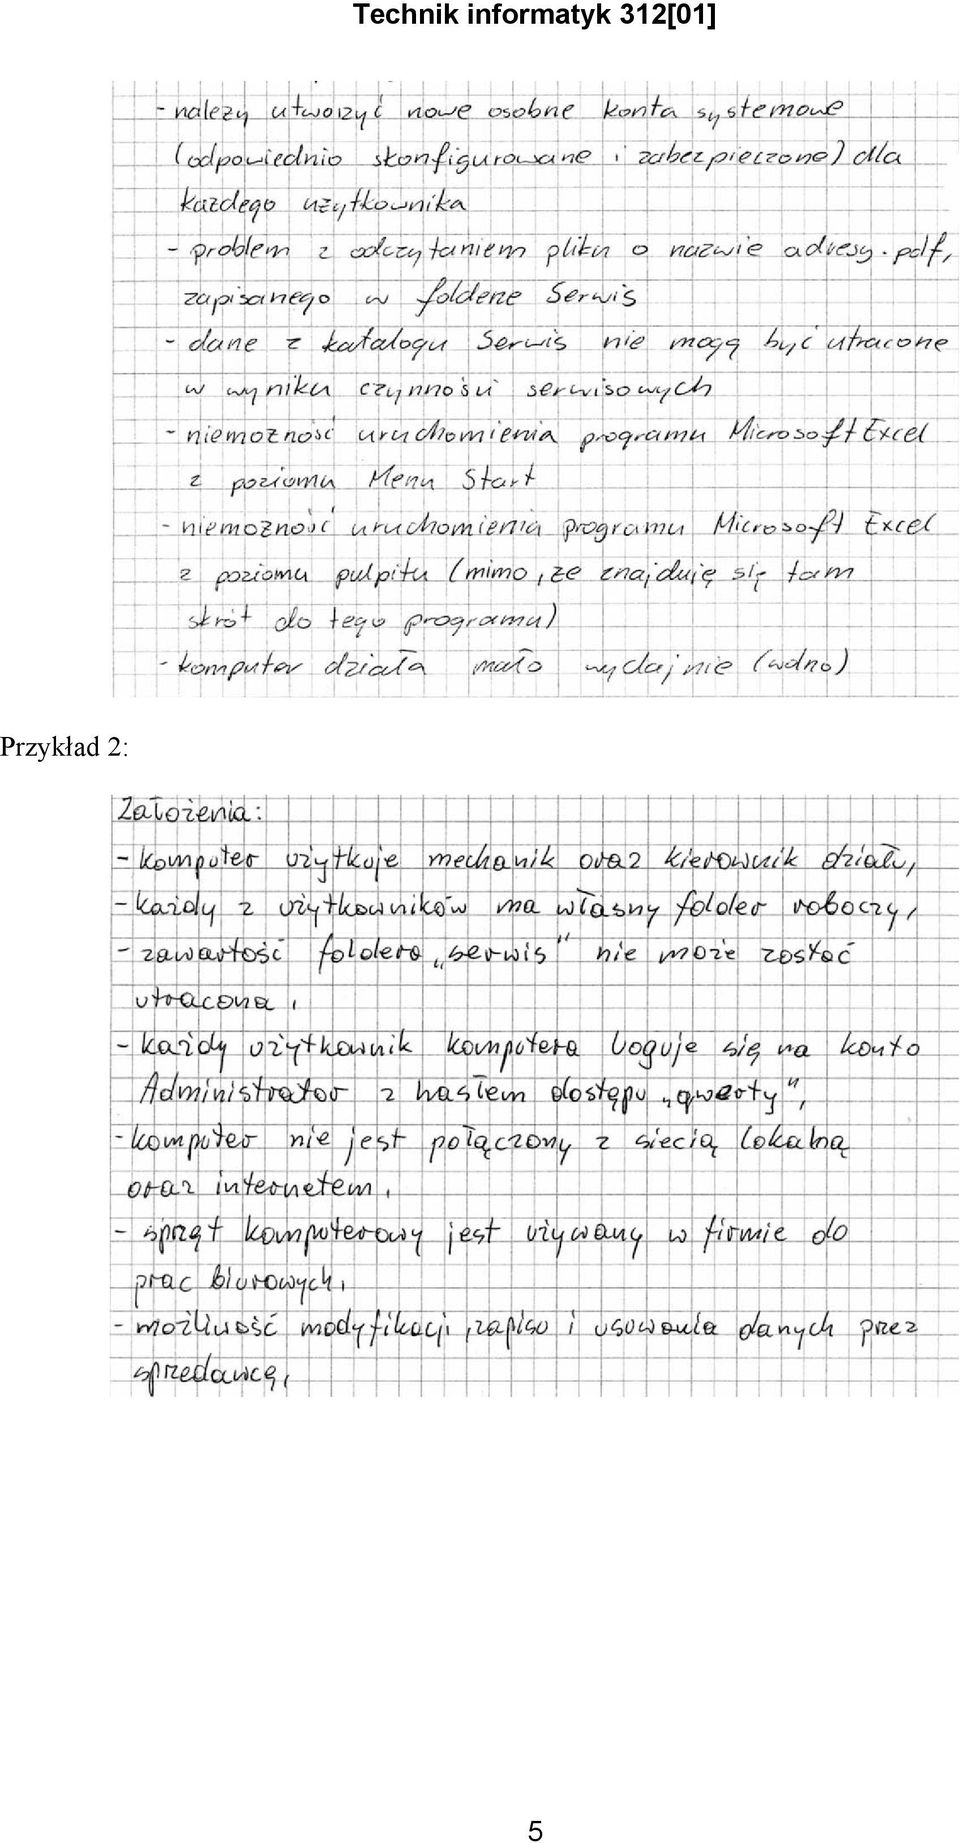 Technik informatyk 312[01]
- należy utworzyć nowe osobne konta systemowe
(odpowiednio skonfigurowane i zabezpieczone) dla
każdego użytkownika
- problem z odczytaniem pliku o nazwie adresy.pdf,
zapisanego w folderze Serwis
- dane z katalogu Serwis nie mogą być utracone
w wyniku czynności serwisowych
- niemożność uruchomienia programu Microsoft Excel
z poziomu Menu Start
- niemożność uruchomienia programu Microsoft Excel
z poziomu pulpitu (mimo, że znajduję się tam
skrót do tego programu)
- komputer działa mało wydajnie (wolno)
Przykład 2:
Założenia:
- komputer użytkuje mechanik oraz kierownik działu,
- każdy z użytkowników ma własny folder roboczy,
- zawartość foldera „serwis" nie może zostać
utracona,
- każdy użytkownik komputera loguje się na konto
Administrator z hasłem dostępu „qwerty",
- komputer nie jest połączony z siecią lokalną
oraz internetem,
- sprzęt komputerowy jest używany w firmie do
prac biurowych,
- możliwość modyfikacji, zapisu i usuwania danych przez
sprzedawcę,
5